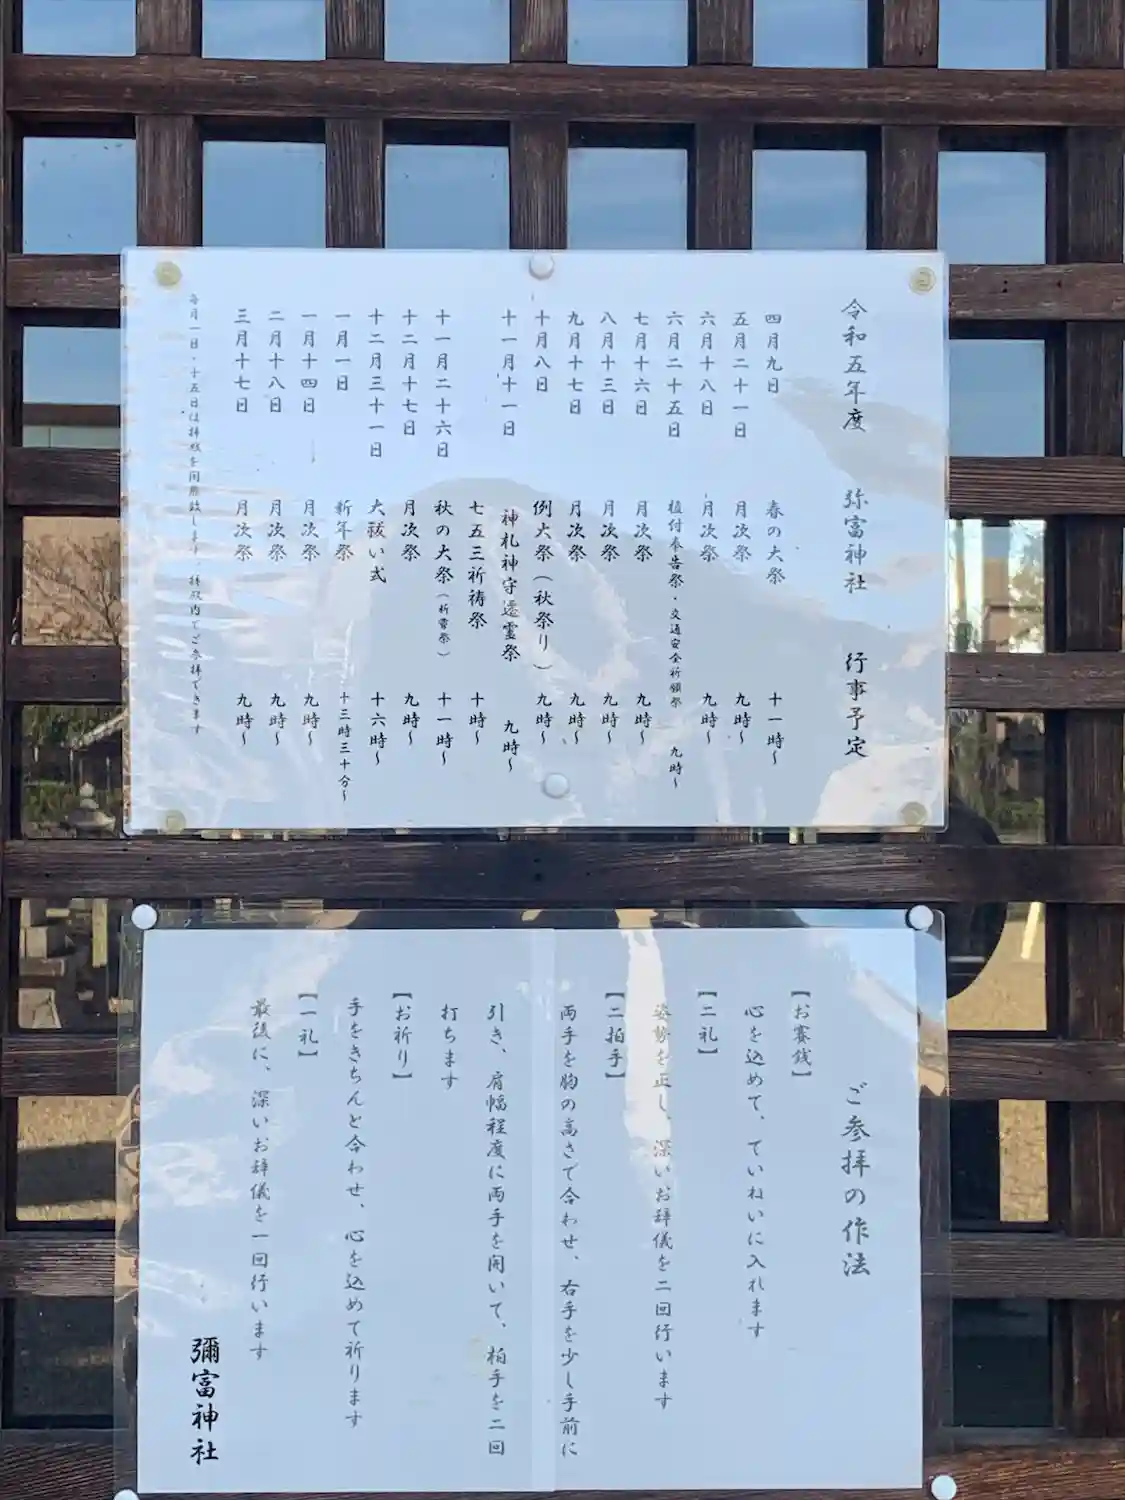 令和五年度 弥富神社 行事予定
四月九日 春の大祭 十一時~
五月二十一日 月次祭 九時~
六月十八日 月次祭 九時~
六月二十五日 植付奉告祭・交通安全祈願祭 九時~
七月十六日 月次祭 九時~
八月十三日 月次祭 九時~
九月十七日 月次祭 九時~
十月八日 例大祭(秋祭り) 九時~
十一月十一日 神札神守遷霊祭 九時~
七五三祈祷祭 十時~
十一月二十六日 秋の大祭(新嘗祭) 十一時~
十二月十七日 月次祭 九時~
十二月三十一日 大祓い式 十六時~
一月一日 新年祭 十三時三十分~
一月十四日 月次祭 九時~
二月十八日 月次祭 九時~
三月十七日 月次祭 九時~
毎月一日・十五日は拝殿を開扉致します。拝殿内でご参拝できます
ご参拝の作法
【お賽銭】
心を込めて、ていねいに入れます
【二礼】
姿勢を正し、深いお辞儀を二回行います
【二拍手】
両手を胸の高さで合わせ、右手を少し手前に
引き、肩幅程度に両手を開いて、柏手を二回
打ちます
【お祈り】
手をきちんと合わせ、心を込めて祈ります
【一礼】
最後に、深いお辞儀を一回行います
彌富神社